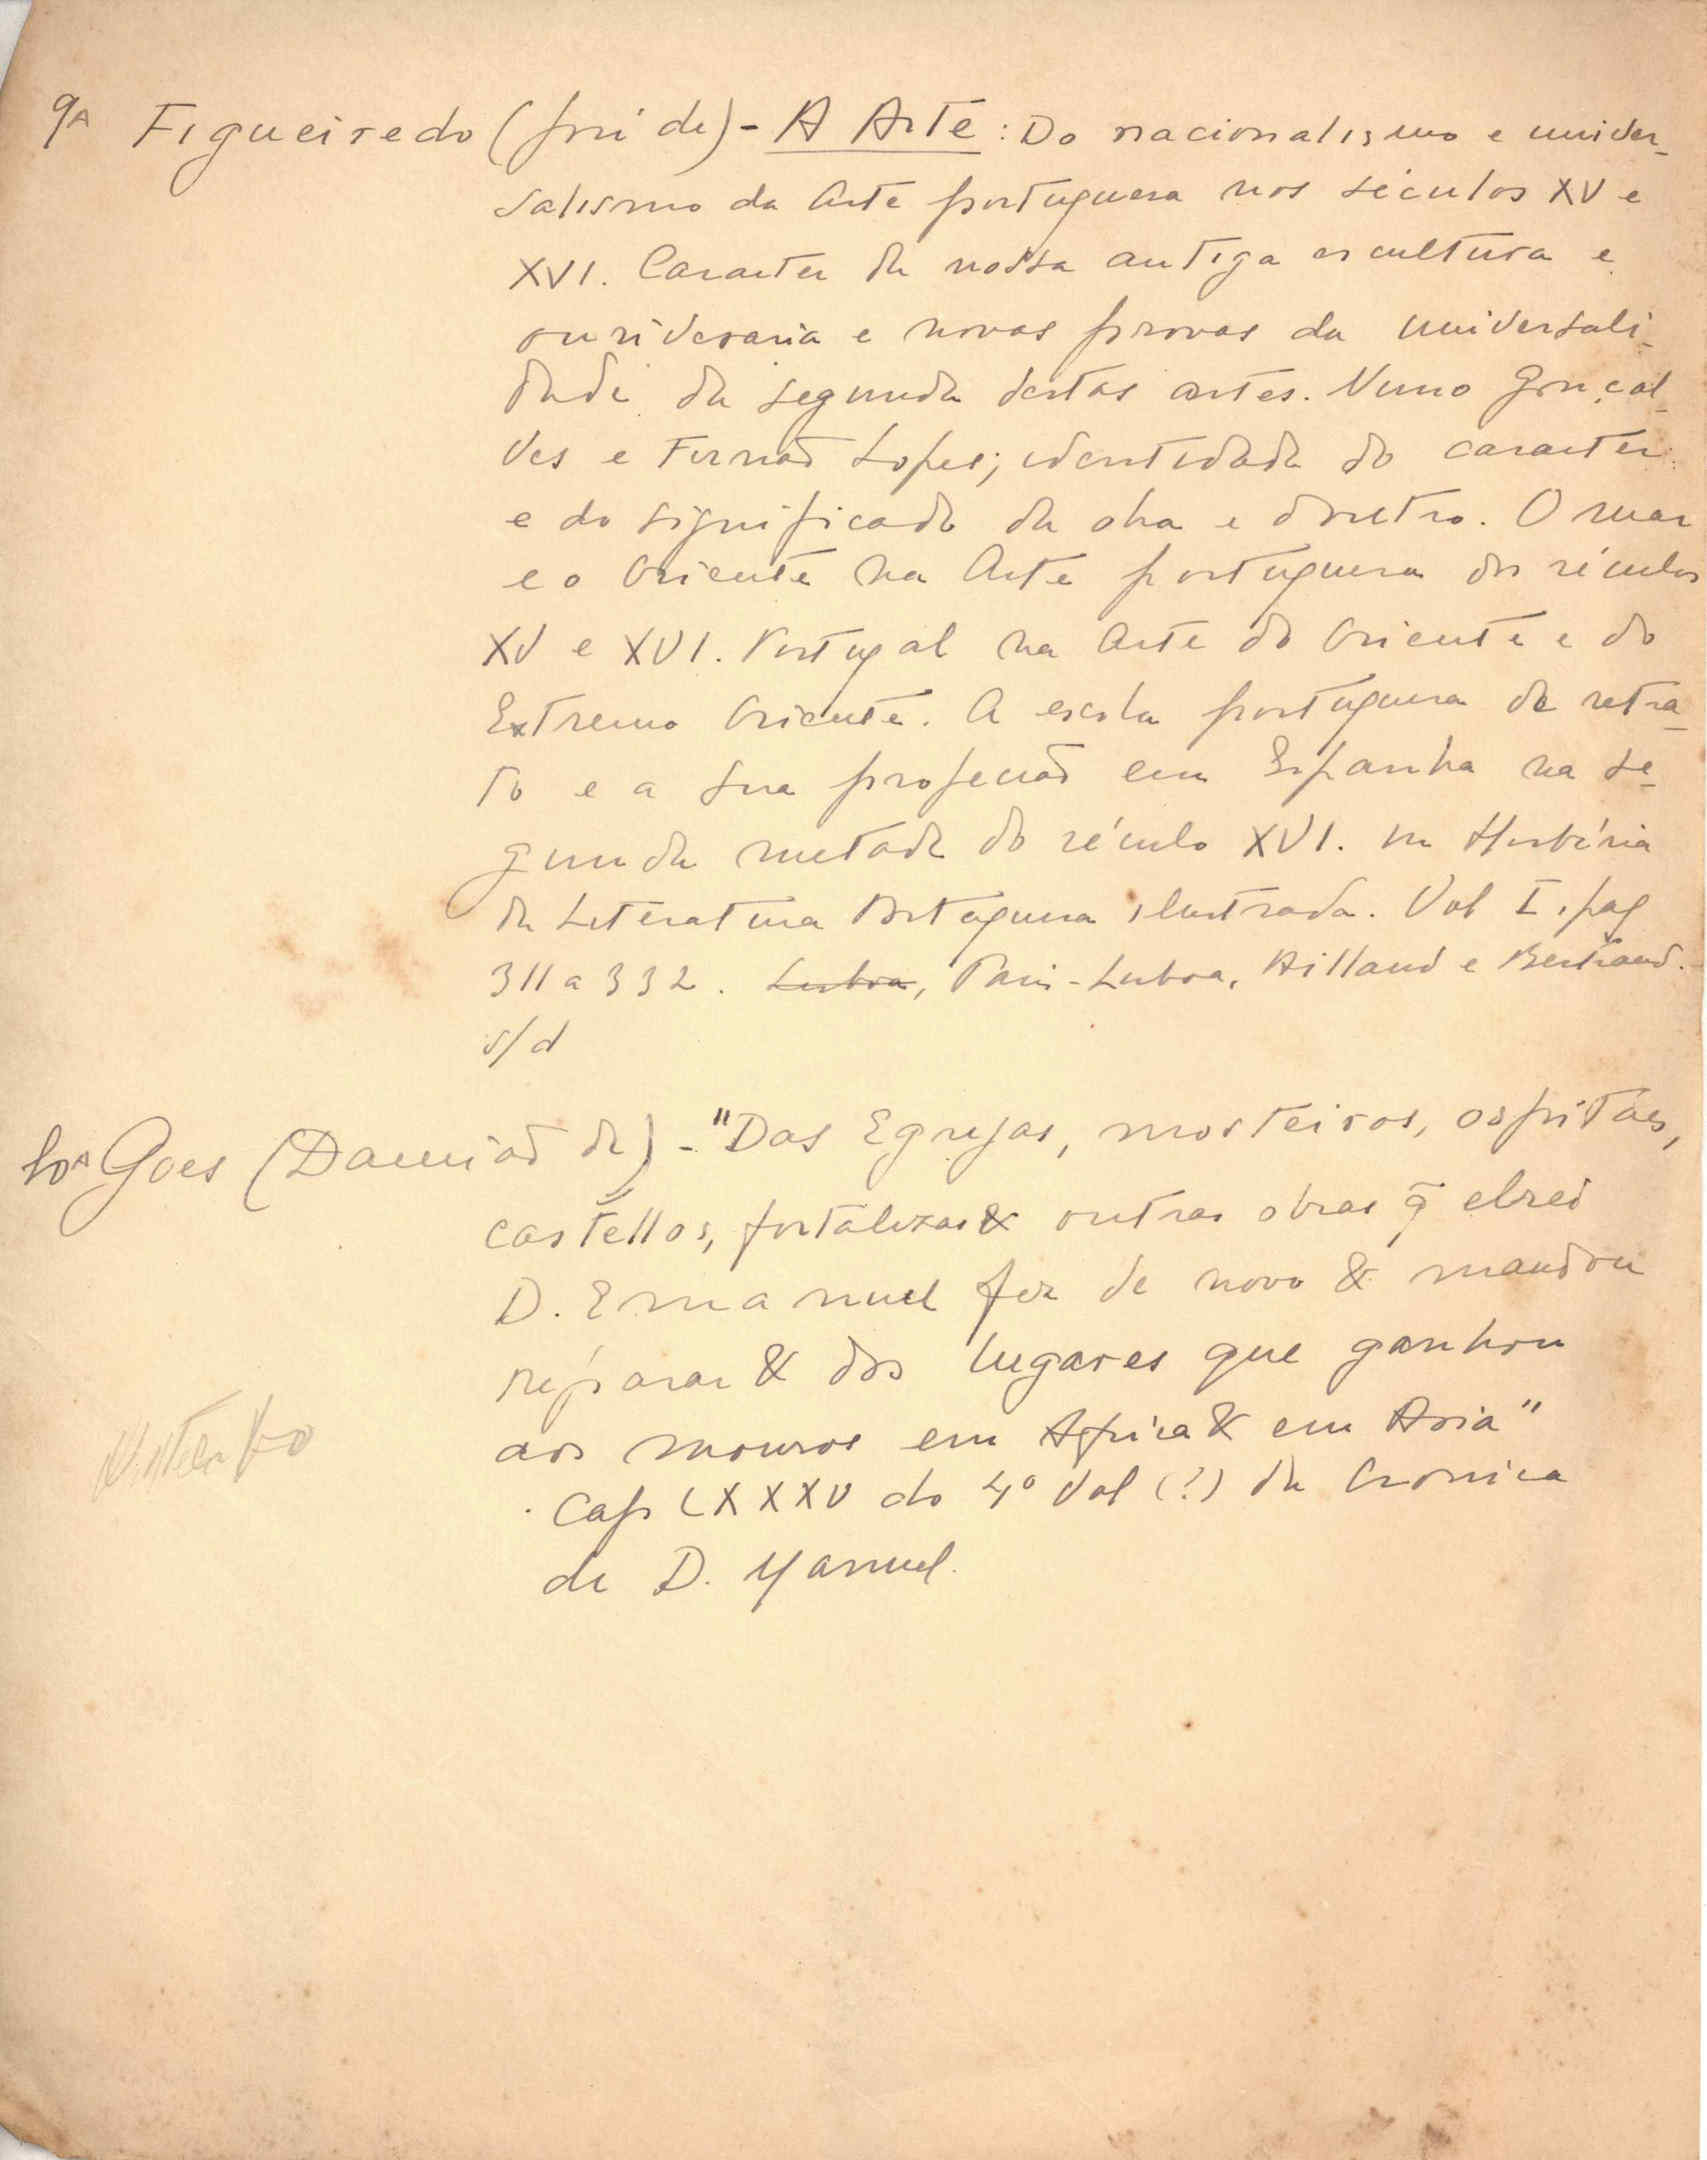 9A Figueiredo (José de) - A Arte: Do nacionalismo e univer-
salismo da Arte portuguesa nos séculos XV e
XVI. Caracter da nossa antiga escultura e
ourivesaria e novas provas da universali-
dade da segunda destas artes. Nuno Gonçal-
ves e Fernão Lopes; identidade do caracter
e do significado da obra e doutro. O mar
e o Oriente na Arte portuguesa dos séculos
XV e XVI. Portugal na Arte do Oriente e do
Extremo Oriente. A escola portuguesa de retra-
to e a sua projecção em Espanha na se-
gunda metade do século XVI. in História
da Literatura Portuguesa ilustrada. Vol I, pag
311 a 332. Lisboa, Paris-Lisboa, Aillaud e Bertrand.
s/d
10A Goes (Damião de) - "Das Egrejas, mosteiros, ospitães,
castellos, fortalezas & outras obras q̃ elrei
D. Emanuel fez de novo & mandou
reparar & dos lugares que ganhou
aos mouros em Africa & em Asia"
Cap LXXXV do 4º Vol (?) da Cronica
de D. Manuel.